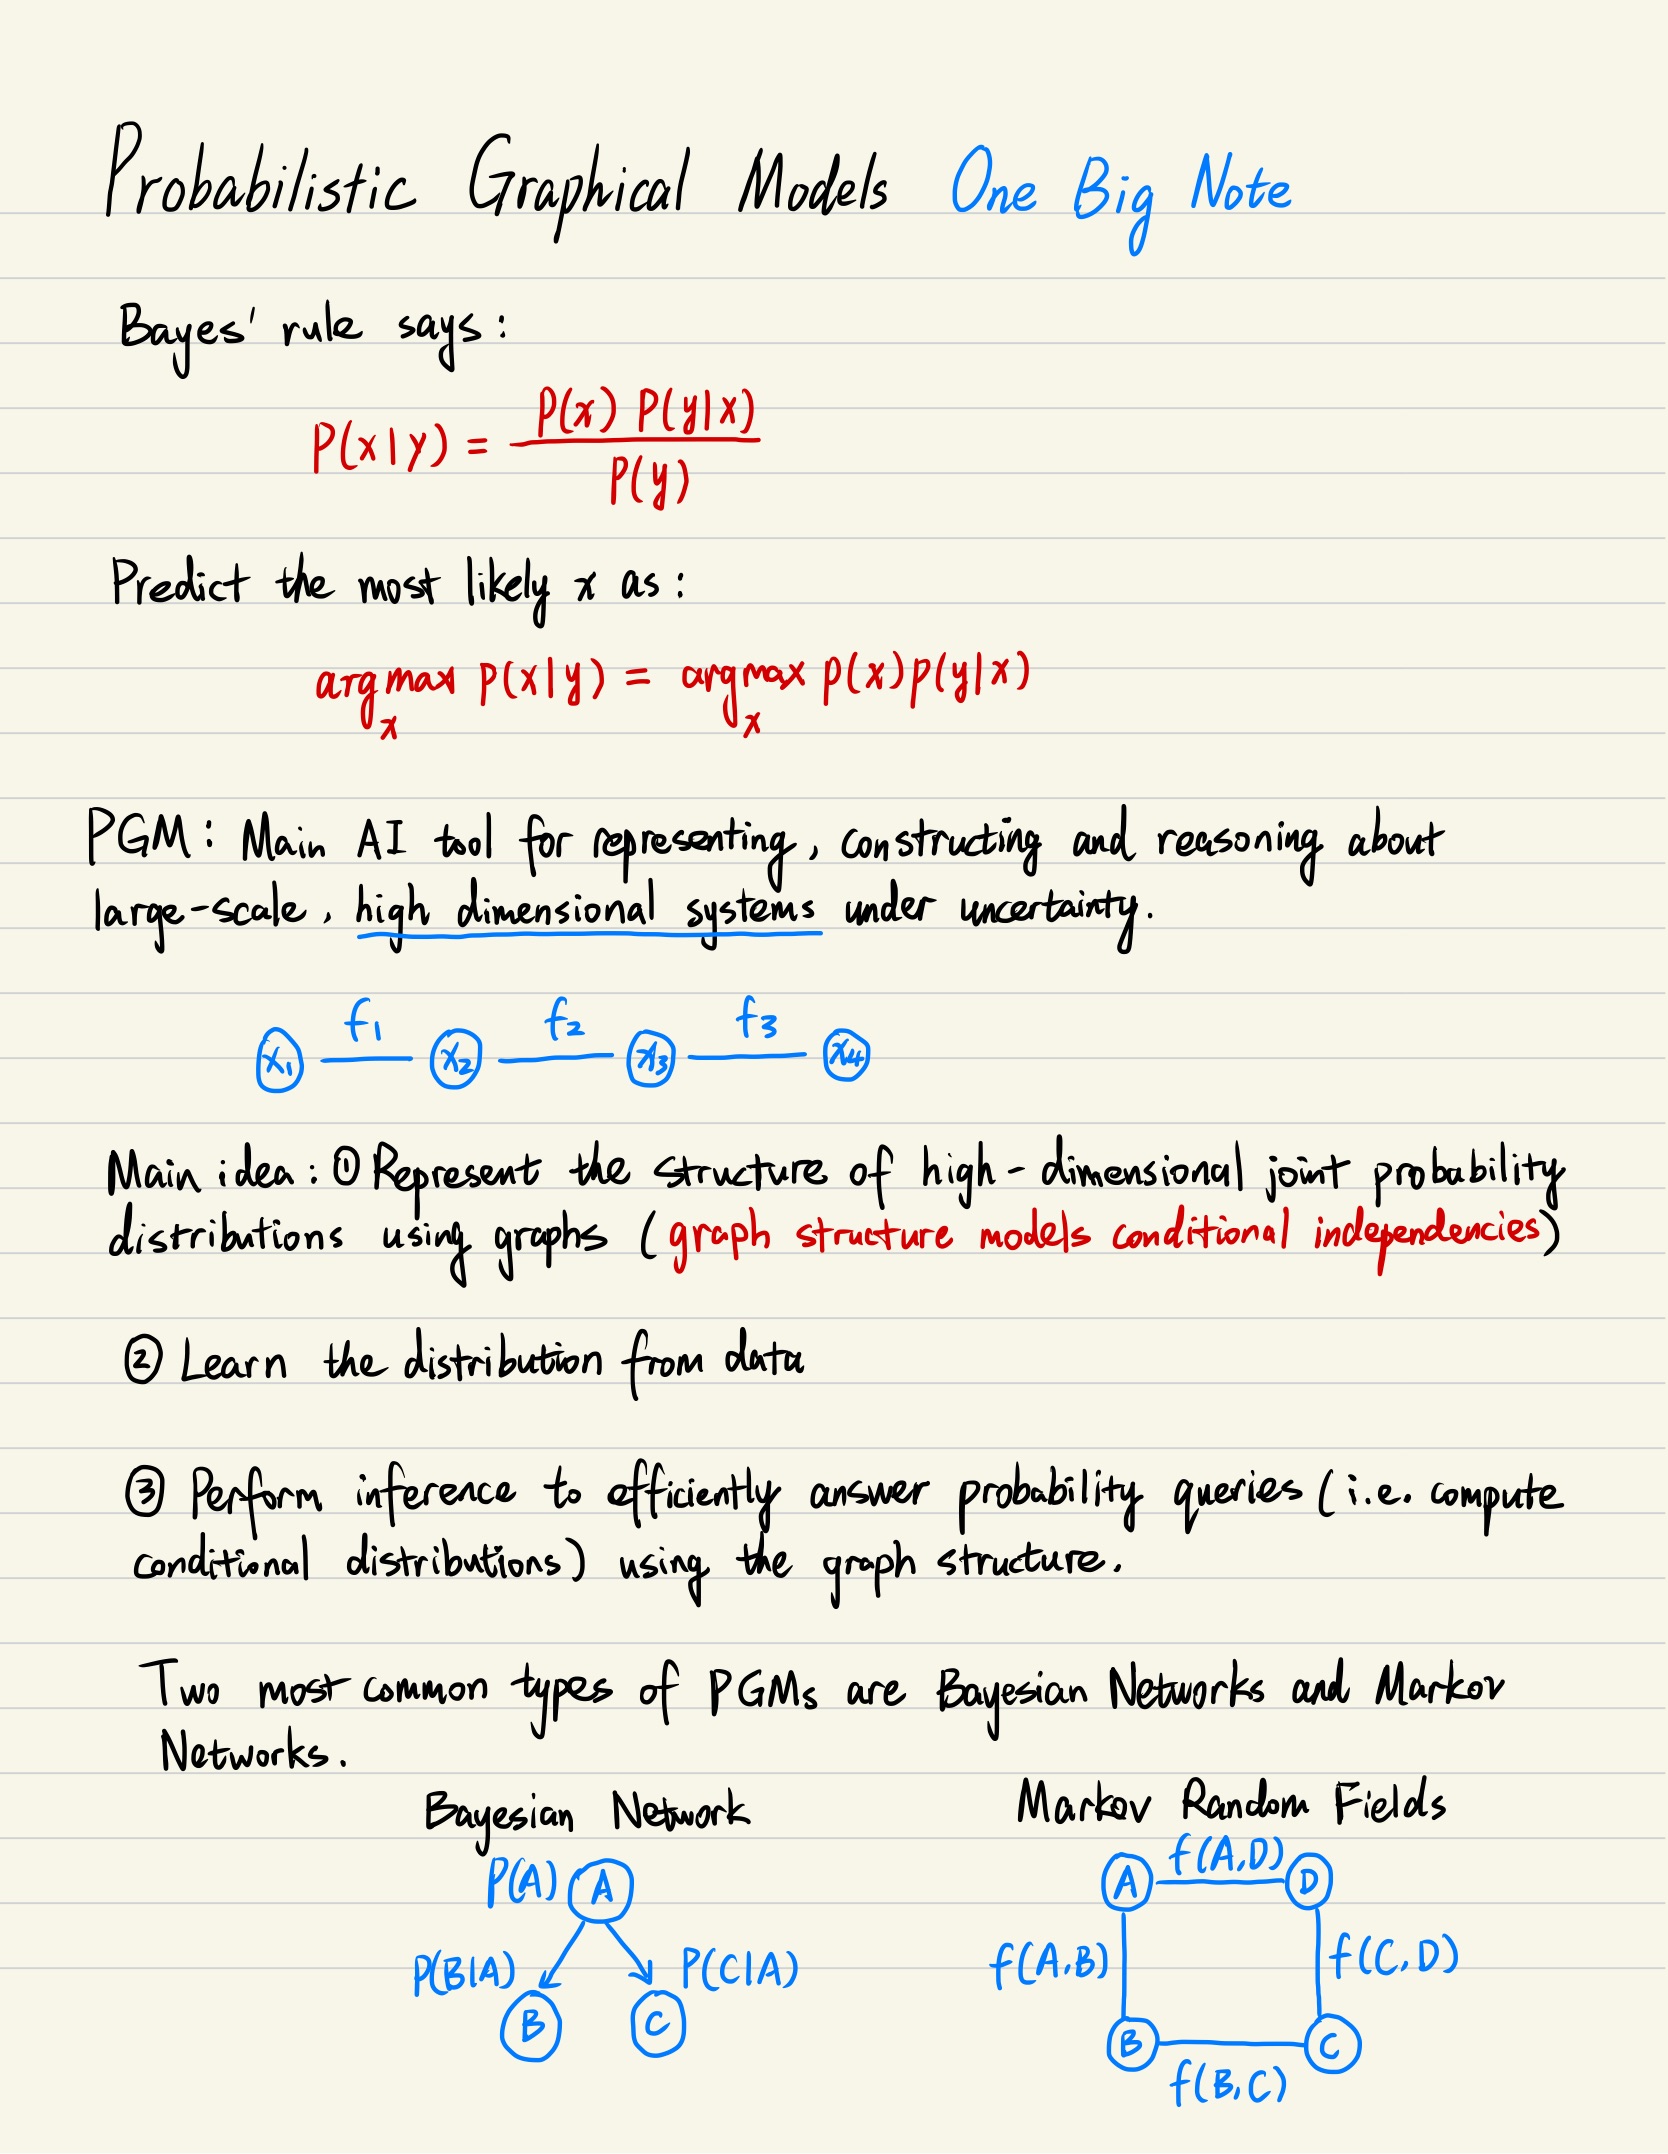 Probabilistic Graphical Models One Big Note
Bayes' rule says:
P(x|y) = P(x) P(y|x) / P(y)
Predict the most likely x as:
argmax_x P(x|y) = argmax_x P(x)P(y|x)
PGM: Main AI tool for representing, constructing and reasoning about
large-scale, high dimensional systems under uncertainty.
f1 f2 f3
x1 x2 x3 x4
Main idea: ① Represent the structure of high-dimensional joint probability
distributions using graphs (graph structure models conditional independencies)
② Learn the distribution from data
③ Perform inference to efficiently answer probability queries (i.e. compute
conditional distributions) using the graph structure.
Two most common types of PGMs are Bayesian Networks and Markov
Networks.
Bayesian Network
P(A) A
P(B|A) P(C|A)
B C
Markov Random Fields
A f(A,D) D
f(A,B) f(C,D)
B C
f(B,C)